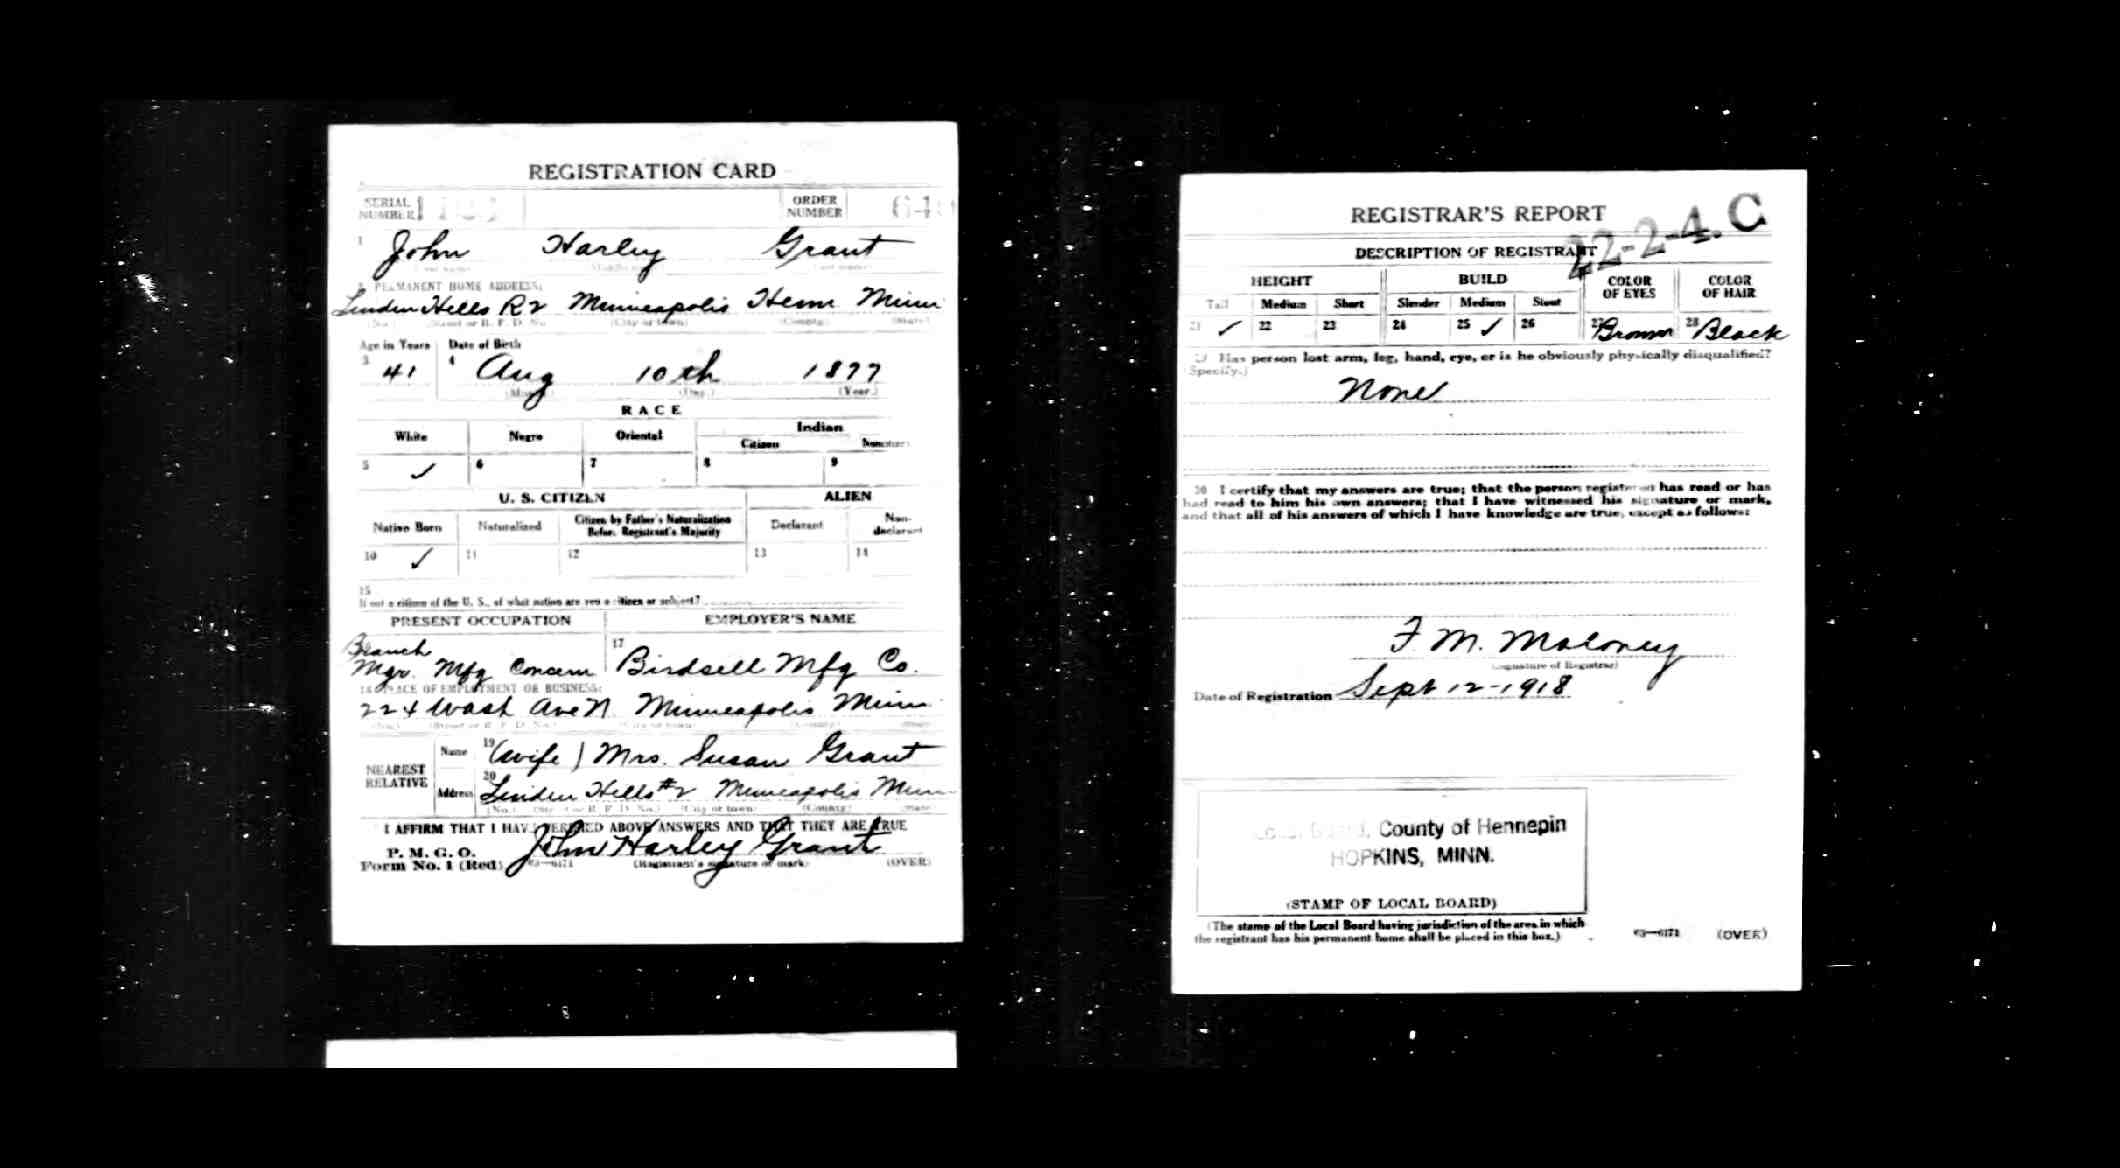 REGISTRATION CARD
SERIAL NUMBER
ORDER NUMBER
1 John Harley Grant
PERMANENT HOME ADDRESS:
Linden Hills R2 Minneapolis Henn Minn
(No.) (Street or R. F. D. No.) (City or town) (County) (State)
Age in Years Date of Birth
3 41 4 Aug 10th 1877
(Month.) (Day.) (Year.)
RACE
White Negro Oriental Indian
Citizen Noncitizen
5 ✓ 6 7 8 9
U. S. CITIZEN ALIEN
Native Born Naturalized Citizen by Father's Naturalization Before Registrant's Majority Declarant Non-declarant
10 ✓ 11 12 13 14
15
If not a citizen of the U. S., of what nation are you a citizen or subject?
PRESENT OCCUPATION EMPLOYER'S NAME
Branch
Mgr. Mfg Concern 17 Birdsell Mfg Co.
18 PLACE OF EMPLOYMENT OR BUSINESS:
224 Wash Ave N. Minneapolis Minn
(No.) (Street or R. F. D. No.) (City or town) (County) (State)
NEAREST RELATIVE
Name 19 (wife) Mrs. Susan Grant
Address 20 Linden Hills #2 Minneapolis Minn
(No.) (Street or R. F. D. No.) (City or town) (County) (State)
I AFFIRM THAT I HAVE VERIFIED ABOVE ANSWERS AND THAT THEY ARE TRUE
P. M. G. O.
Form No. 1 (Red) 03—6171 John Harley Grant
(Registrant's signature or mark) (OVER)
REGISTRAR'S REPORT
22-2-4. C
DESCRIPTION OF REGISTRANT
HEIGHT BUILD COLOR OF EYES COLOR OF HAIR
Tall Medium Short Slender Medium Stout
21 ✓ 22 23 24 25 ✓ 26 27 Brown 28 Black
29 Has person lost arm, leg, hand, eye, or is he obviously physically disqualified?
(Specify.)
None
30 I certify that my answers are true; that the person registered has read or has
had read to him his own answers; that I have witnessed his signature or mark,
and that all of his answers of which I have knowledge are true, except as follows:
F. M. Maloney
(Signature of Registrar)
Date of Registration Sept 12-1918
Local Board, County of Hennepin
HOPKINS, MINN.
(STAMP OF LOCAL BOARD)
(The stamp of the Local Board having jurisdiction of the area in which
the registrant has his permanent home shall be placed in this box.)
03—6171 (OVER)